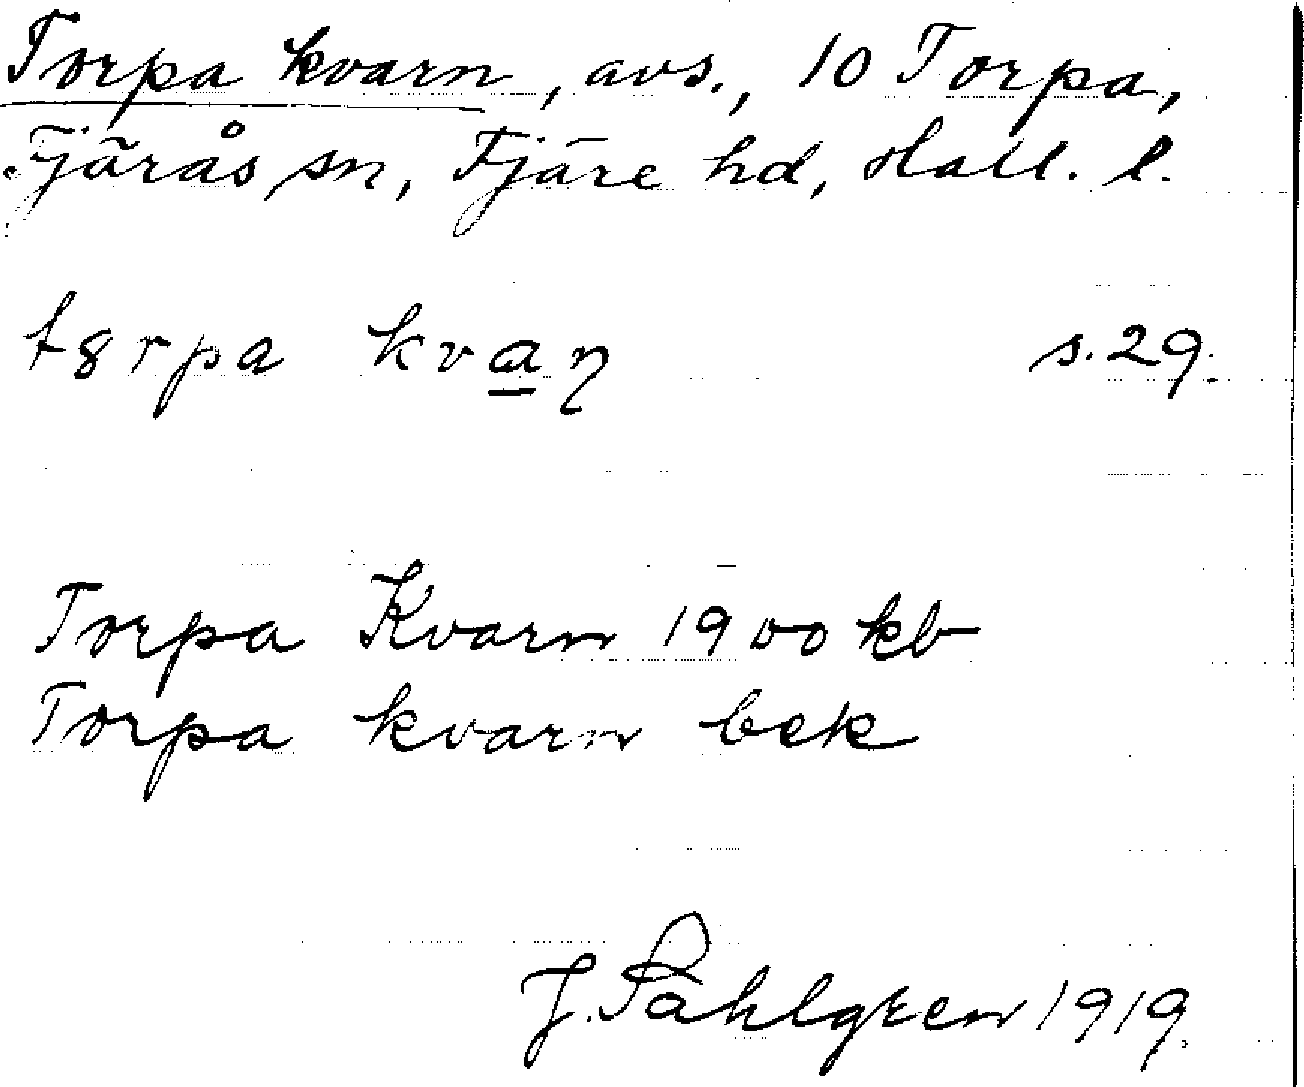 Torpa kvarn, avs., 10 Torpa,
Fjärås sn, Fjäre hd, Hall. l.
t8rpa kvaɳ s. 29.
Torpa Kvarn 1900 kb
Torpa kvarn bek
J. Påhlgren 1919